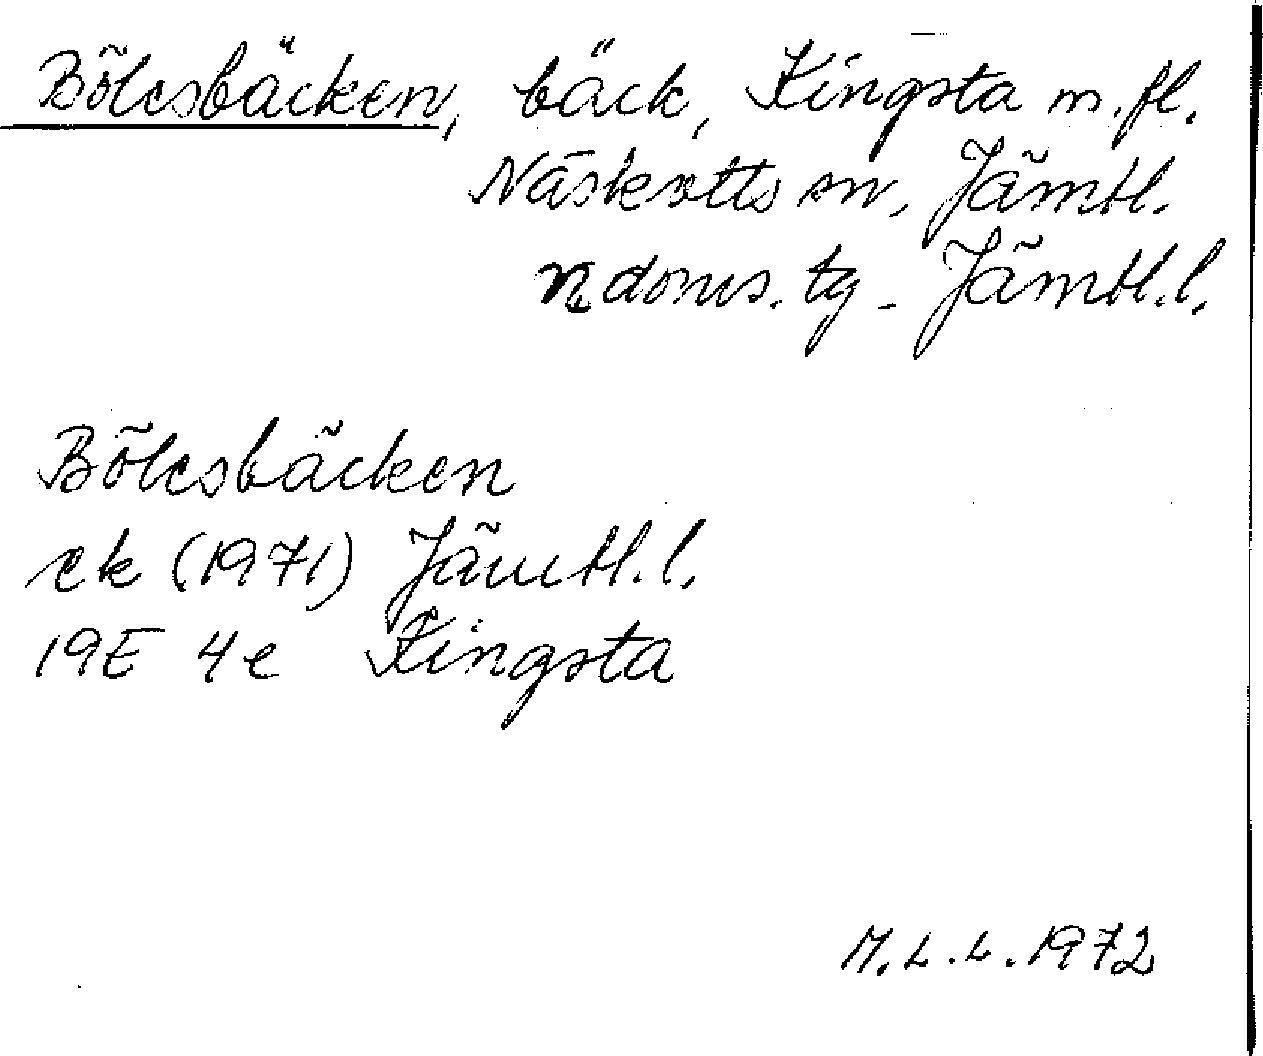 Bölesbäcken, bäck, Kingsta m.fl.
Näskotts sn, Jämtl.
n. doms. tg. Jämtl.l.
Bölesbäcken
ek (1971) Jämtl.l.
19E 4e Kingsta
M.L.L. 1972